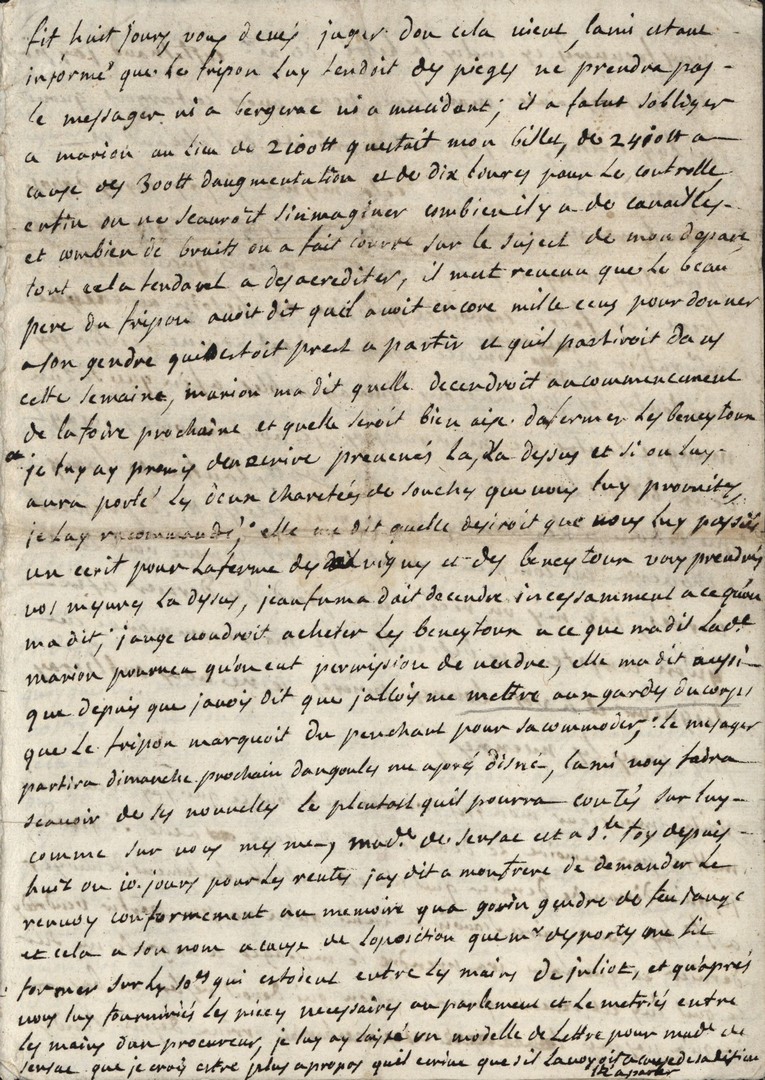 fit huit jours, vous devés juger dou cela vient, lami estant
informé que le fripon luy tendoit des pieges ne prendra pas
le messager ni a bergerac ni a mucidant; il a falut sobliger
a marion au lieu de 2100tt questait mon billet, de 2410tt a
cause des 300tt daugmentation et de dix livres pour le controlle,
enfin on ne scauroit simmaginer combien il y a de canailles
et combien de bruits on a fait courre sur le suject de mon depart
tout cela tendant a desacrediter, il mest revenu que le beau
pere du fripon avoit dit quil avoit encore mille ecus pour donner
a son gendre qui estoit prest a partir et quil partiroit dans
cette semaine, marion ma dit quelle decendroit au commencement
de la foire prochaine et quelle seroit bien aise dafermer les beneytoux
je luy ay promis den ecrire prevenés la, la dessus et si on luy
aura porté les deux charetées de souches que vous luy promites
je luy recommandé; elle me dit quelle desiroit que vous luy passiés
un ecrit pour laferme des vignes et des beneytoux vous prendrés
vos mesures la desus, jean fumadoit decendre incessamment a ce quon
ma dit; jauge voudroit acheter les beneytoux a ce que ma dit lade
marion pourveu quon eut permission de vendre, elle ma dit aussi
que depuis que javois dit que jallois me mettre aux gardes du corps
que le fripon marquoit du penchant pour sacommoder; le mesager
partira dimanche prochain dangoulesme aprés disné, lami vous fadra
scavoir de ses nouvelles le plutost quil pourra contés sur luy
comme sur vous mesmes, made de sensac est a ste foy depuis
huit ou 10 jours pour les rentes jay dit a mon frere de demander le
renvoy conformement au memoire qua gorin gendre de feu jauge
et cela a son nom a cause de loposition que mr desportes me fit
former sur les 50tt qui estoient entre les mains de juliot, et quaprés
vous luy fourniriés les pieces necessaires au parlement et le metriés entre
les mains dun procureur, je luy ay laissé un modelle de lettre pour made de
sensac que je crois estre plus a propos quil ecrive que sil la voyoit a cause de sa